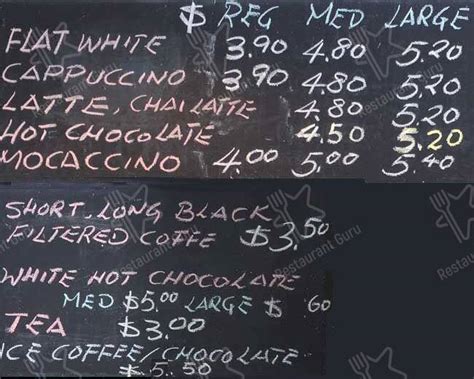 $ REG MED LARGE
FLAT WHITE 3.90 4.80 5.20
CAPPUCCINO 3.90 4.80 5.20
LATTE, CHAI LATTE 4.80 5.20
HOT CHOCOLATE 4.50 5.20
MOCACCINO 4.00 5.00 5.40
SHORT, LONG BLACK
FILTERED COFFE $3.50
WHITE HOT CHOCOLATE
MED $5.00 LARGE $ 60
TEA $3.00
ICE COFFEE/CHOCOLATE
$5.50
Restaurant Guru
Restaurant Guru
Restaurant Guru
Restaurant Guru